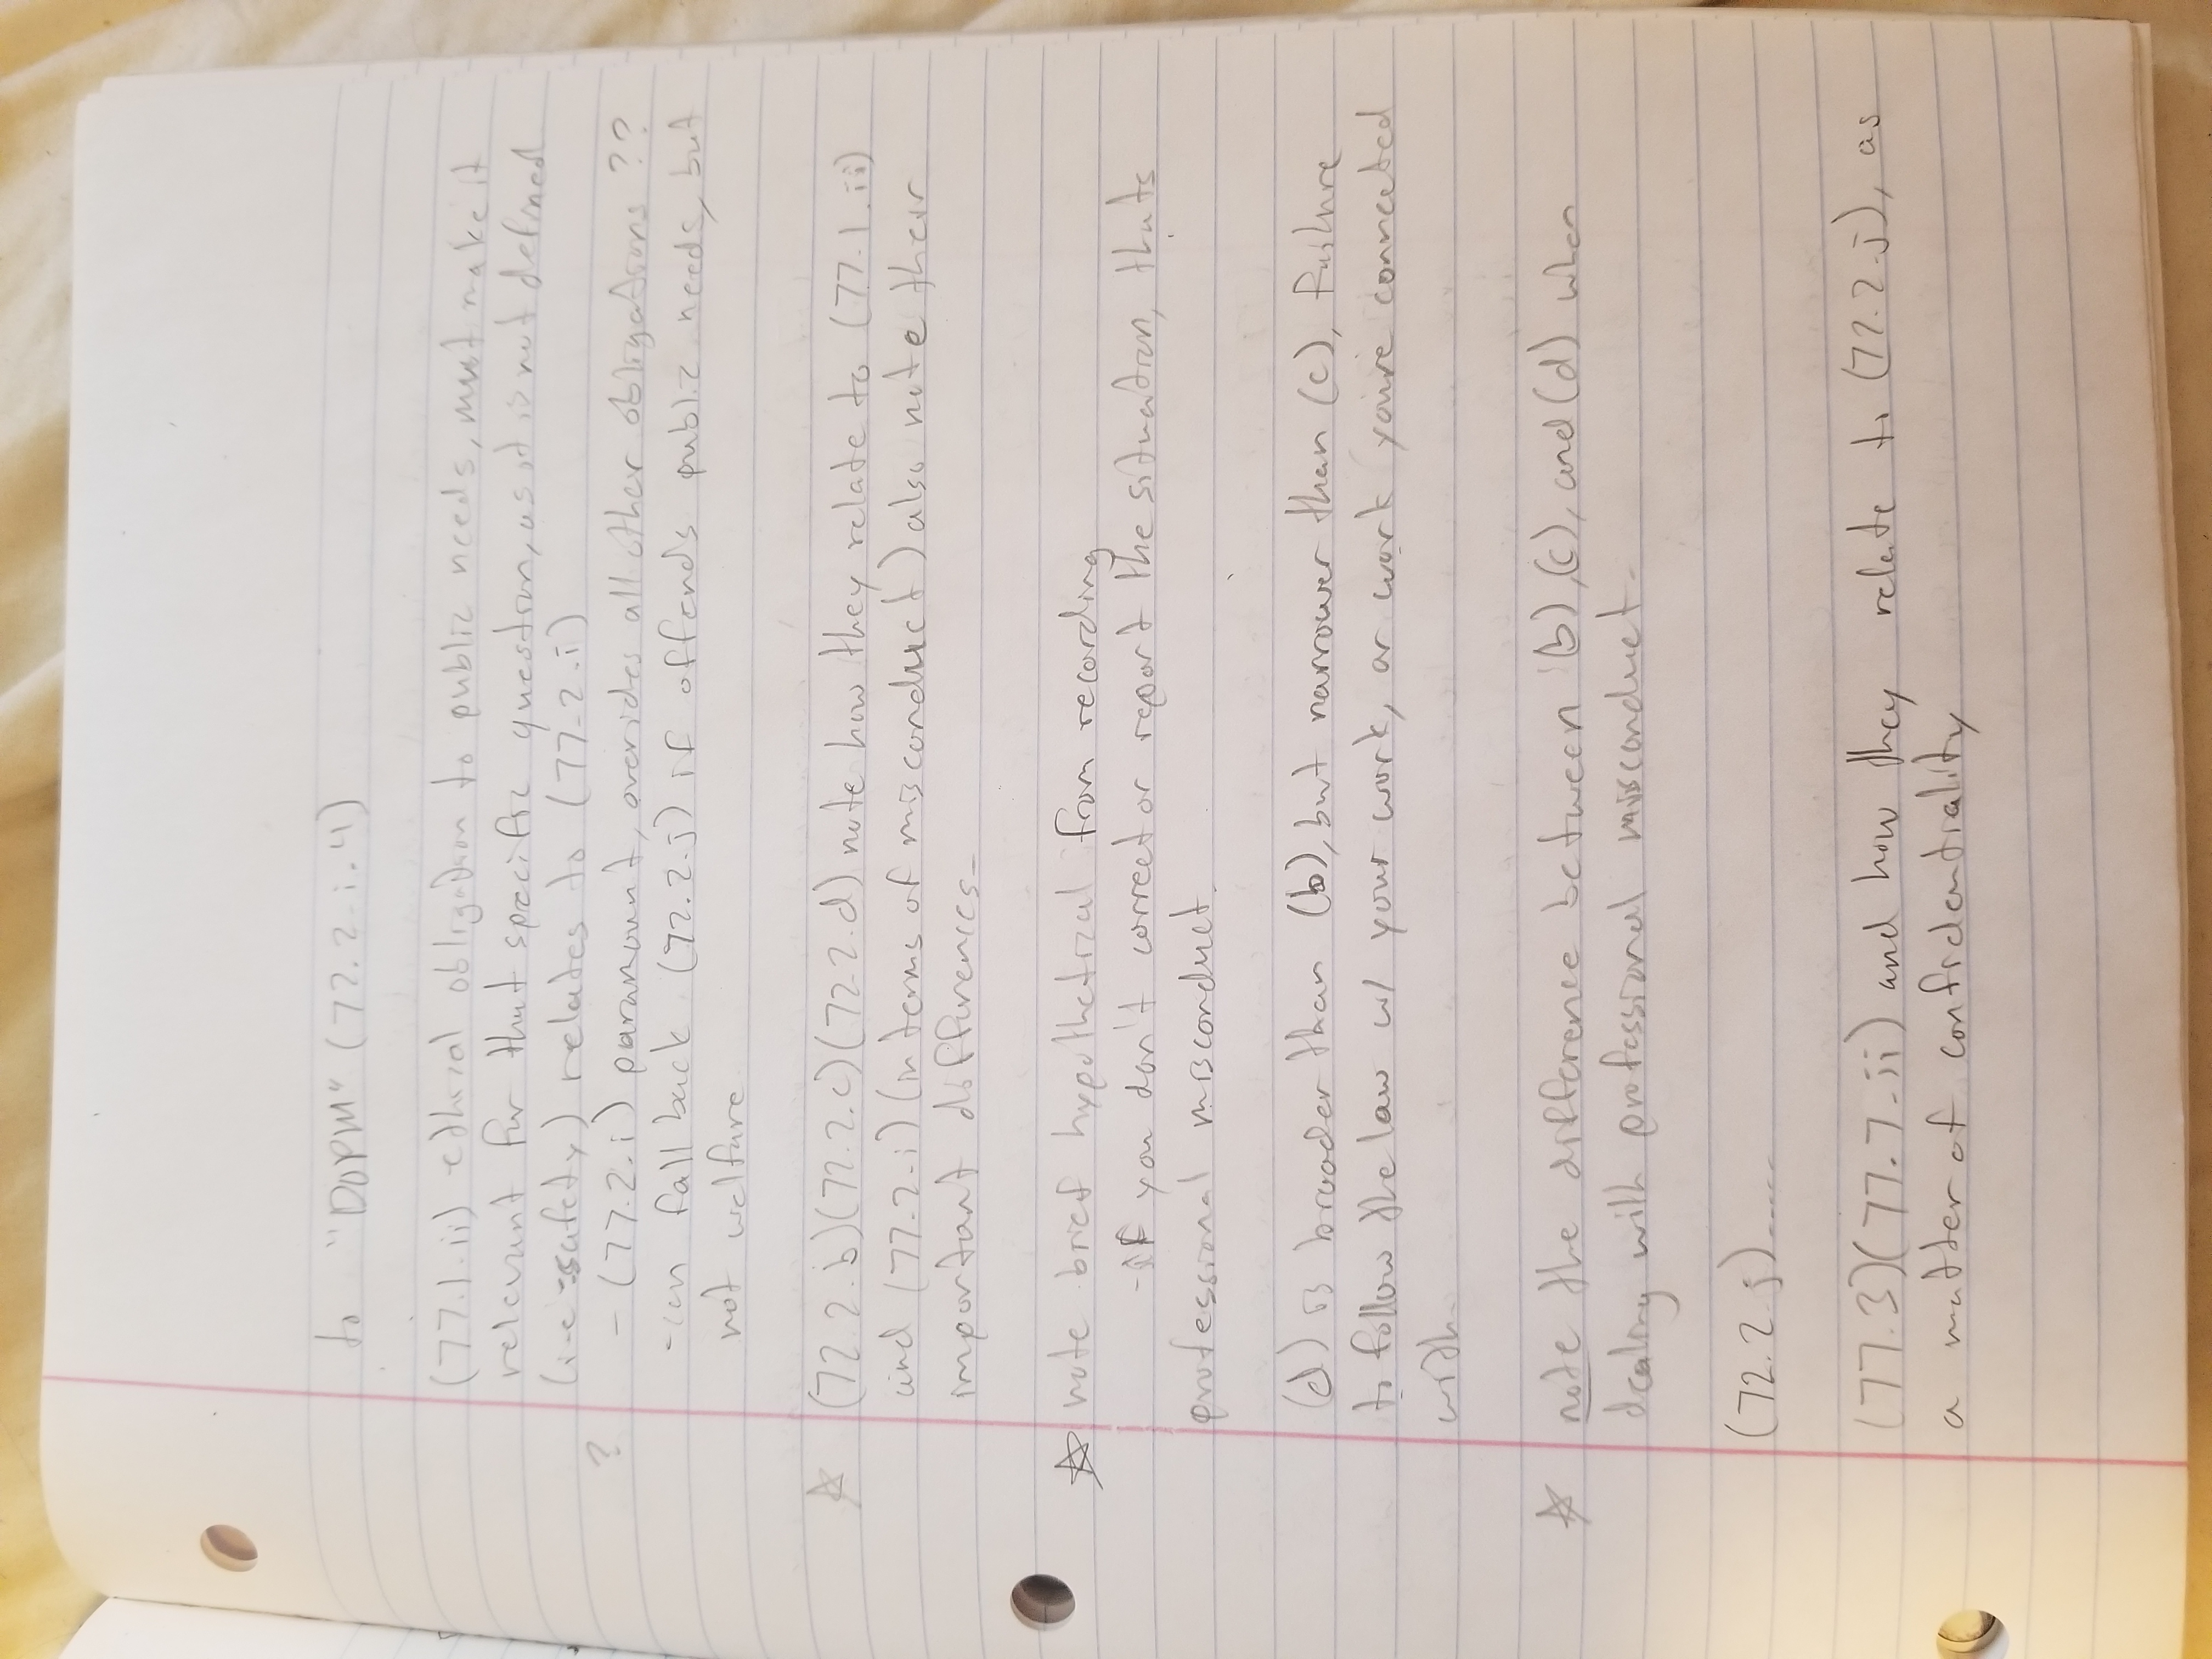 to "DOPM" (72.2.i.4)
(77.1.ii) ethical obligation to public needs, must make it
relevant for that specific question, as it is not defined
(i.e. safety) relates to (77.2.i)
? - (77.2.i) paramount, overides all other obligations??
-can fall back (72.2.j) if offends public needs, but
not welfare
☆ (72.2.b)(72.2.c)(72.2.d) note how they relate to (77.1.ii)
and (77.2.i) (in terms of misconduct) also note their
important differences.
☆ note brief hypothetical from recording
-If you don't correct or report the situation, thats
professional misconduct.
(d) is broader than (b), but narrower than (c), failure
to follow the law w/ your work, or work you're connected
with.
☆ note the difference between (b), (c), and (d) when
dealing with professional misconduct.
(72.2.j).....
(77.3)(77.7.ii) and how they relate to (72.2.j), as
a matter of confidentiality